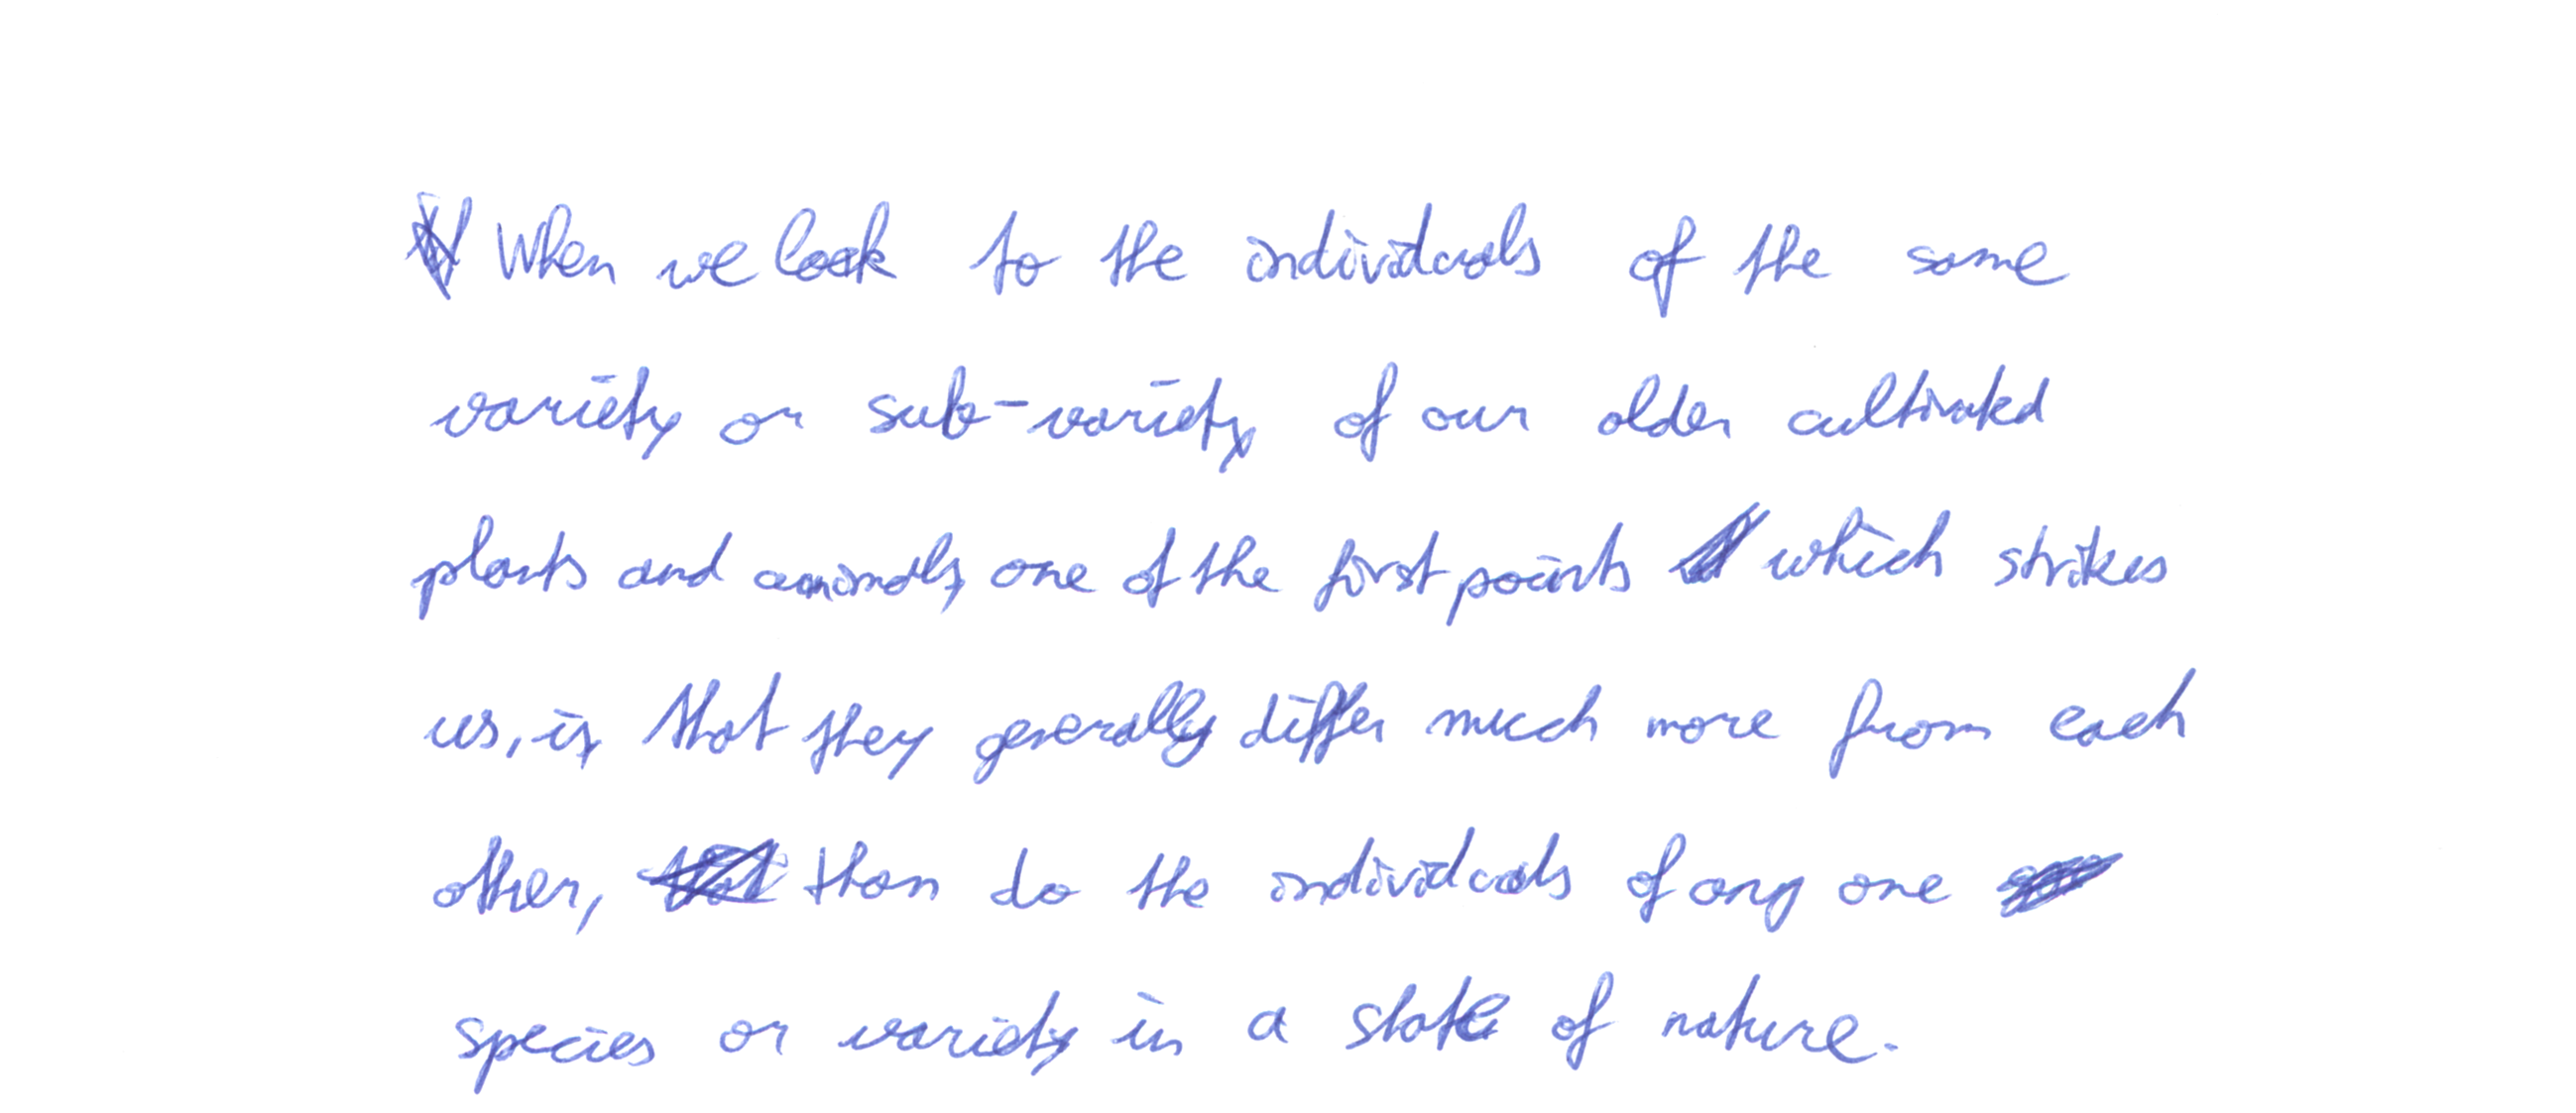 When we look to the individuals of the same
variety or sub-variety of our older cultivated
plants and animals, one of the first points which strikes
us, is that they generally differ much more from each
other, than do the individuals of any one
species or variety in a state of nature.